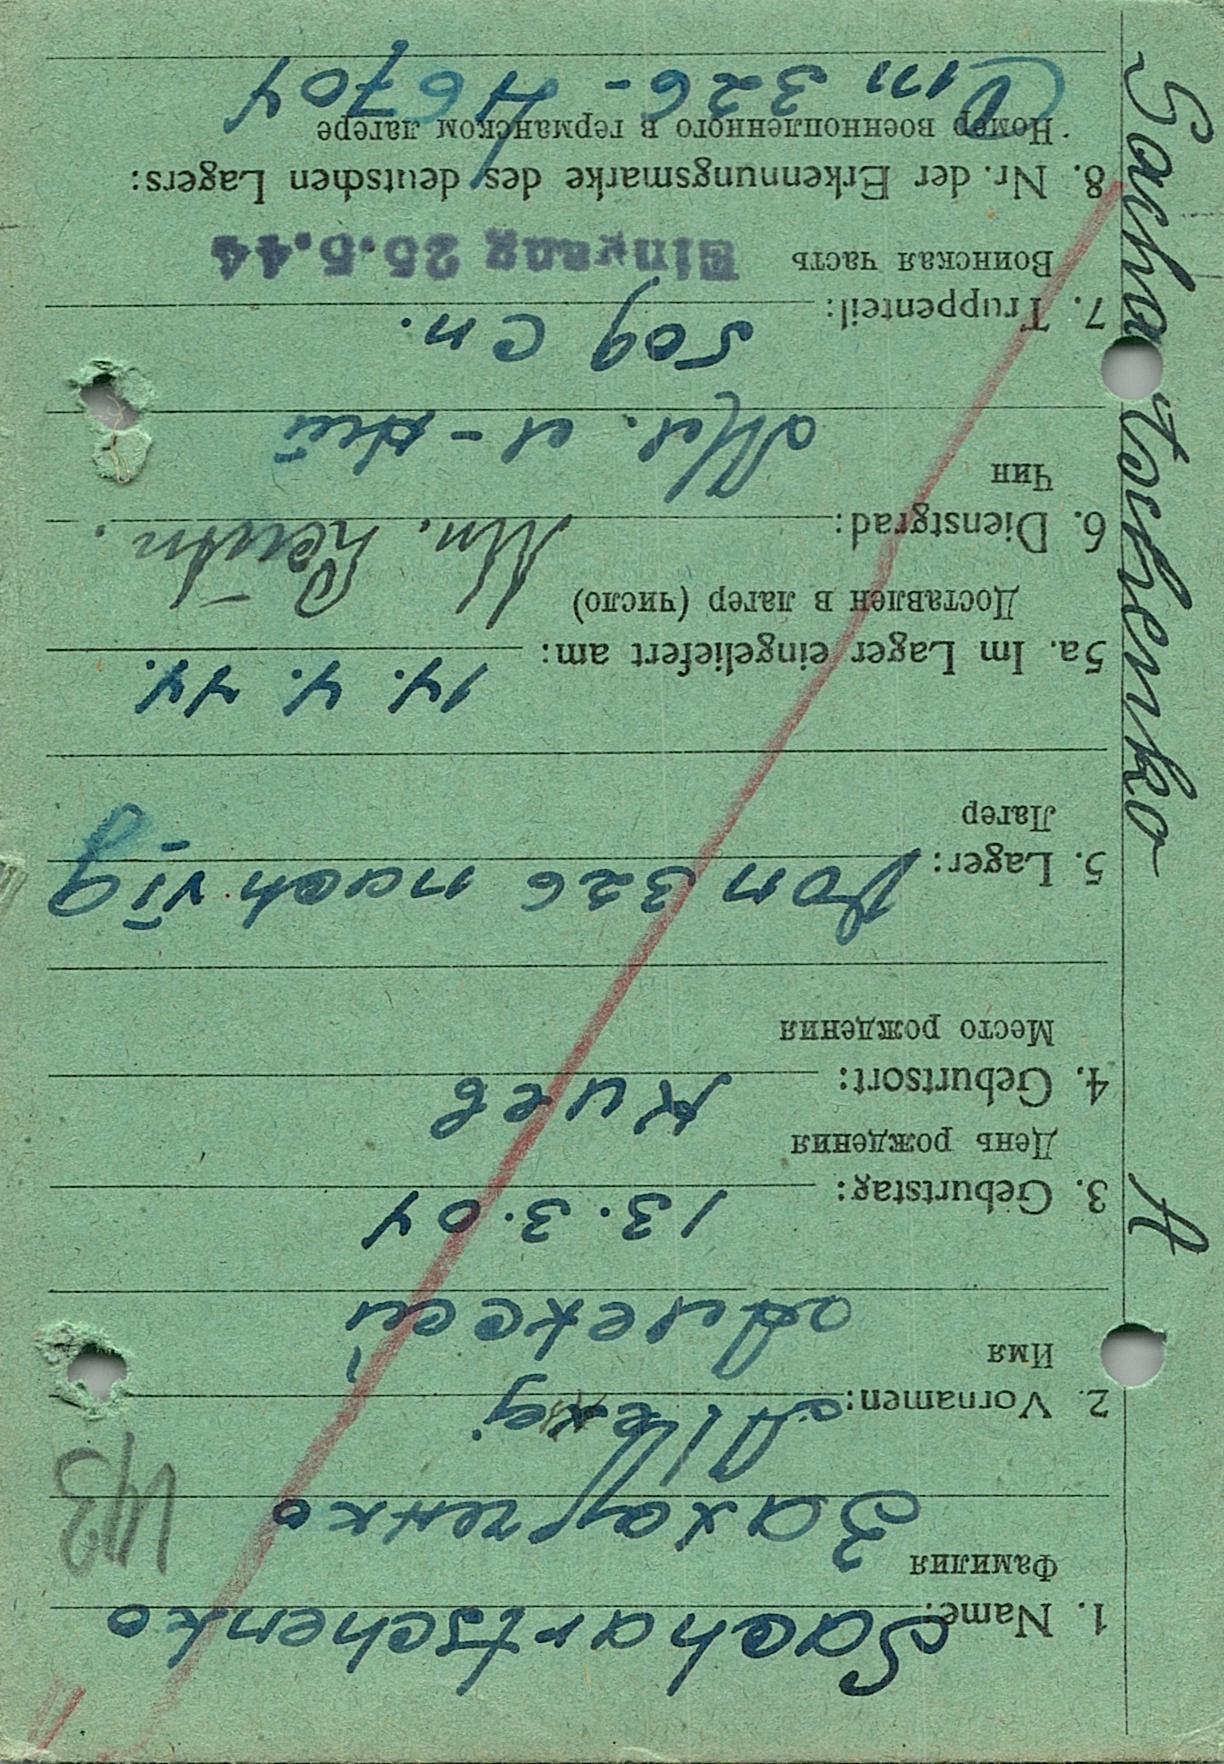 Sachartschenko A
Sachartschenko
1. Name:
Фамилия
Захарченко
Alexej
2. Vornamen:
Имя
Алексей
13. 3. 04
3. Geburtstag:
День рождения
Киев
4. Geburtsort:
Место рождения
Von 326 nach VI G
5. Lager:
Лагер
14. 4. 44.
5a. Im Lager eingeliefert am:
Доставлен в лагер (число)
Leutn.
6. Dienstgrad:
Чин
Мл. л-тий
509 сп.
7. Truppenteil:
Воинская часть
Eingang 25.5.44
8. Nr. der Erkennungsmarke des deutschen Lagers:
Номер военнопленного в германском лагере
326 - 46704